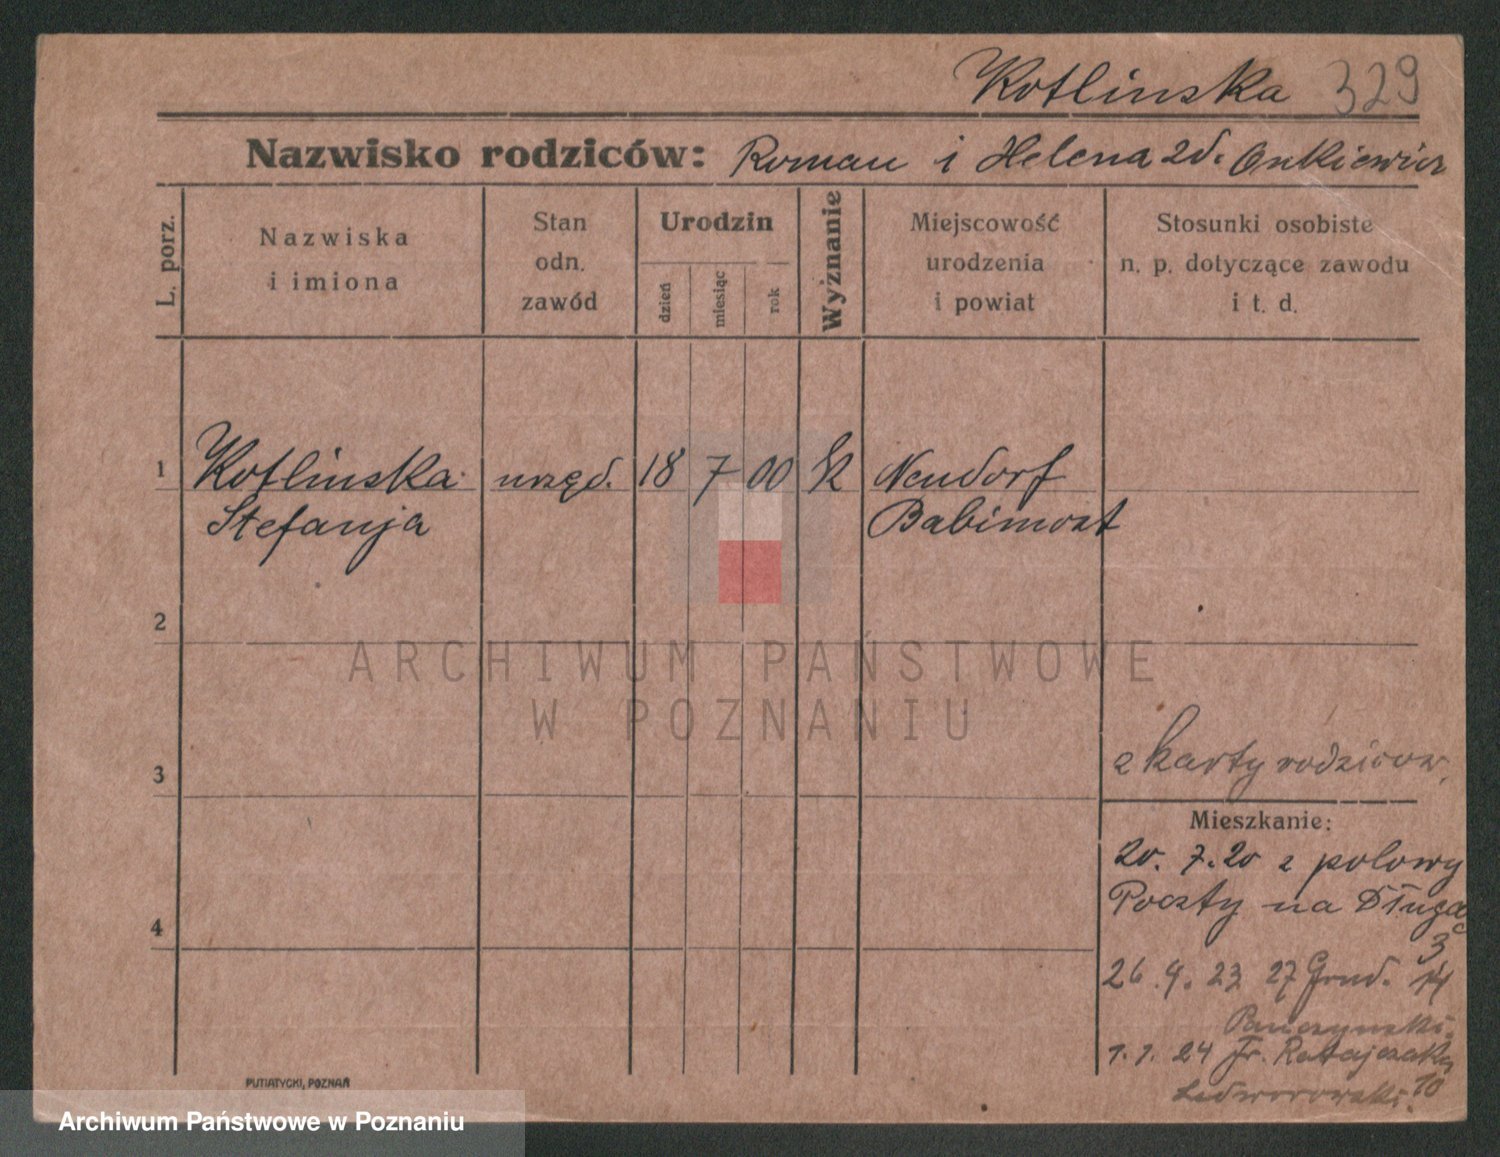 Kotlinska 329
Nazwisko rodziców: Roman i Helena zd. Onkiewicz
L. porz.
Nazwiska
i imiona
Stan
odn.
zawód
Urodzin
dzień
miesiąc
rok
Wyżnanie
Miejscowość
urodzenia
i powiat
Stosunki osobiste
n. p. dotyczące zawodu
i t. d.
1 Kotlinska urzęd. 18 7 00 Neudorf
Stefanja Babimost
2
ARCHIWUM PAŃSTWOWE
W POZNANIU
3
z karty rodziców.
Mieszkanie:
20. 7. 20 z polowy
Poczty na Długą
3
4
26. 9. 23 27 Grud. 14
1. 1. 24 Fr. Ratajczaka
10
PUTIATYCKI, POZNAŃ
Archiwum Państwowe w Poznaniu